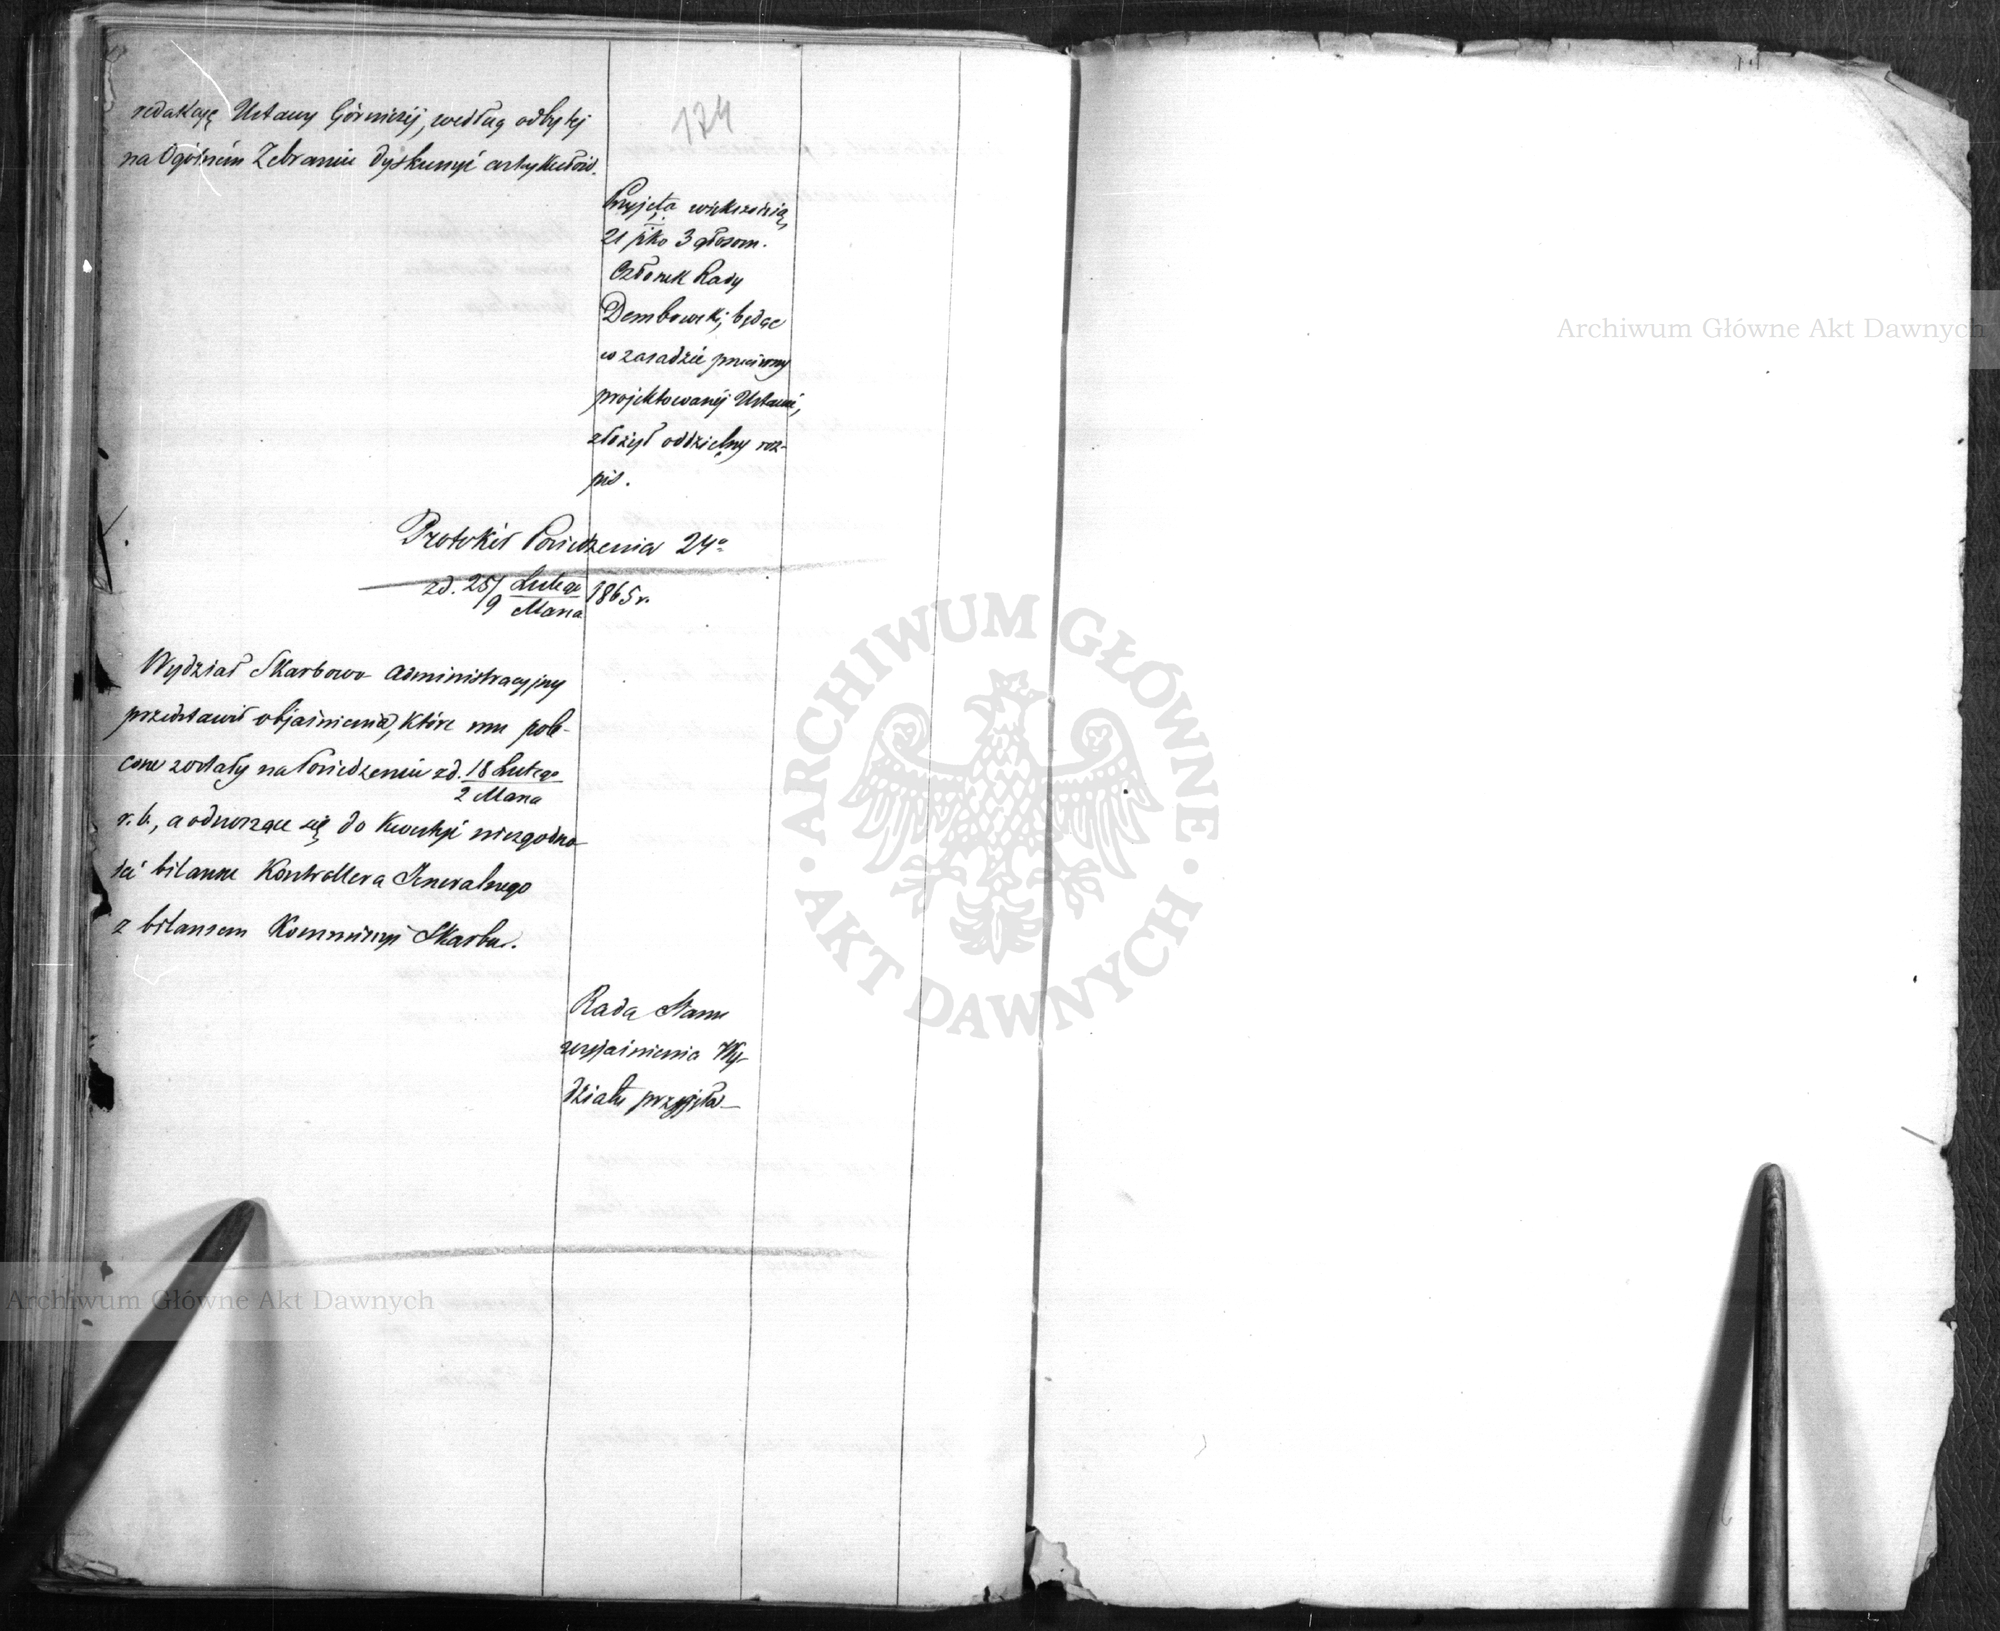 174
redakcyę Ustawy Górniczéj, według odbytej
na Ogólném Zebraniu dyskussyi artykułów.
Przyjęta większością
21 pko 3 głosom.
Członek Rady
Dembowski, będąc
w zasadzie przeciwny
projektowanéj Ustawie,
złożył oddzielny roz-
pis.
Protokół Posiedzenia 24º
z d. 25/9 Lutego/Marca 1865 r.
Wydział Skarbowo Administracyjny
przedstawił objaśnienia, które mu pole-
cone zostały na Posiedzeniu z d. 18 Lutego
2 Marca
r. b., a odnoszące się do kwestyi niezgodno-
ści bilansu Kontrollera Jeneralnego
z bilansem Kommissyi Skarbu.
Rada Stanu
wyjaśnienia Wy-
działu przyjęła
Archiwum Główne Akt Dawnych
Archiwum Główne Akt Dawnych
ARCHIWUM GŁÓWNE
AKT DAWNYCH